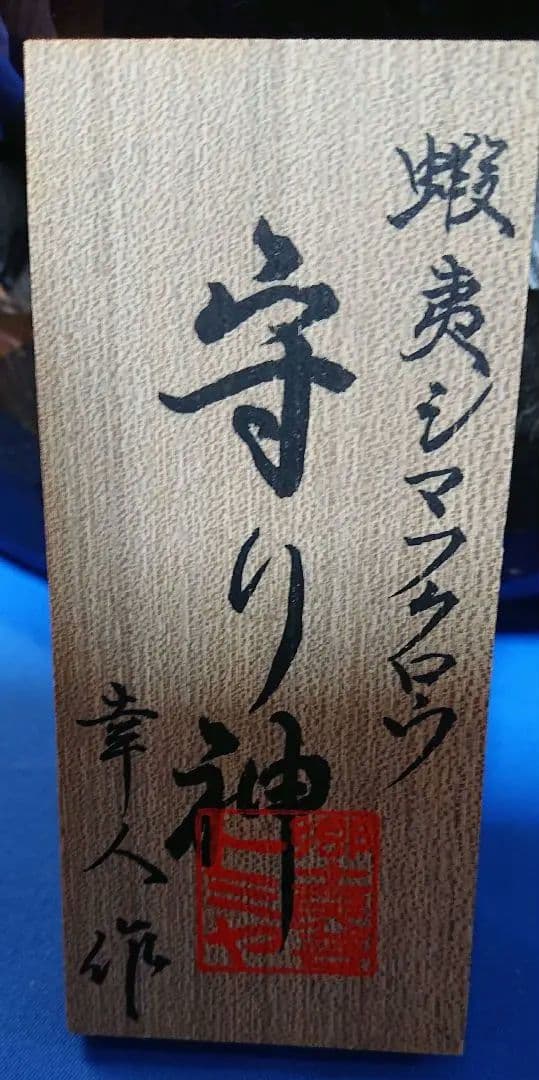 蝦夷シマフクロウ
守り神
幸人作